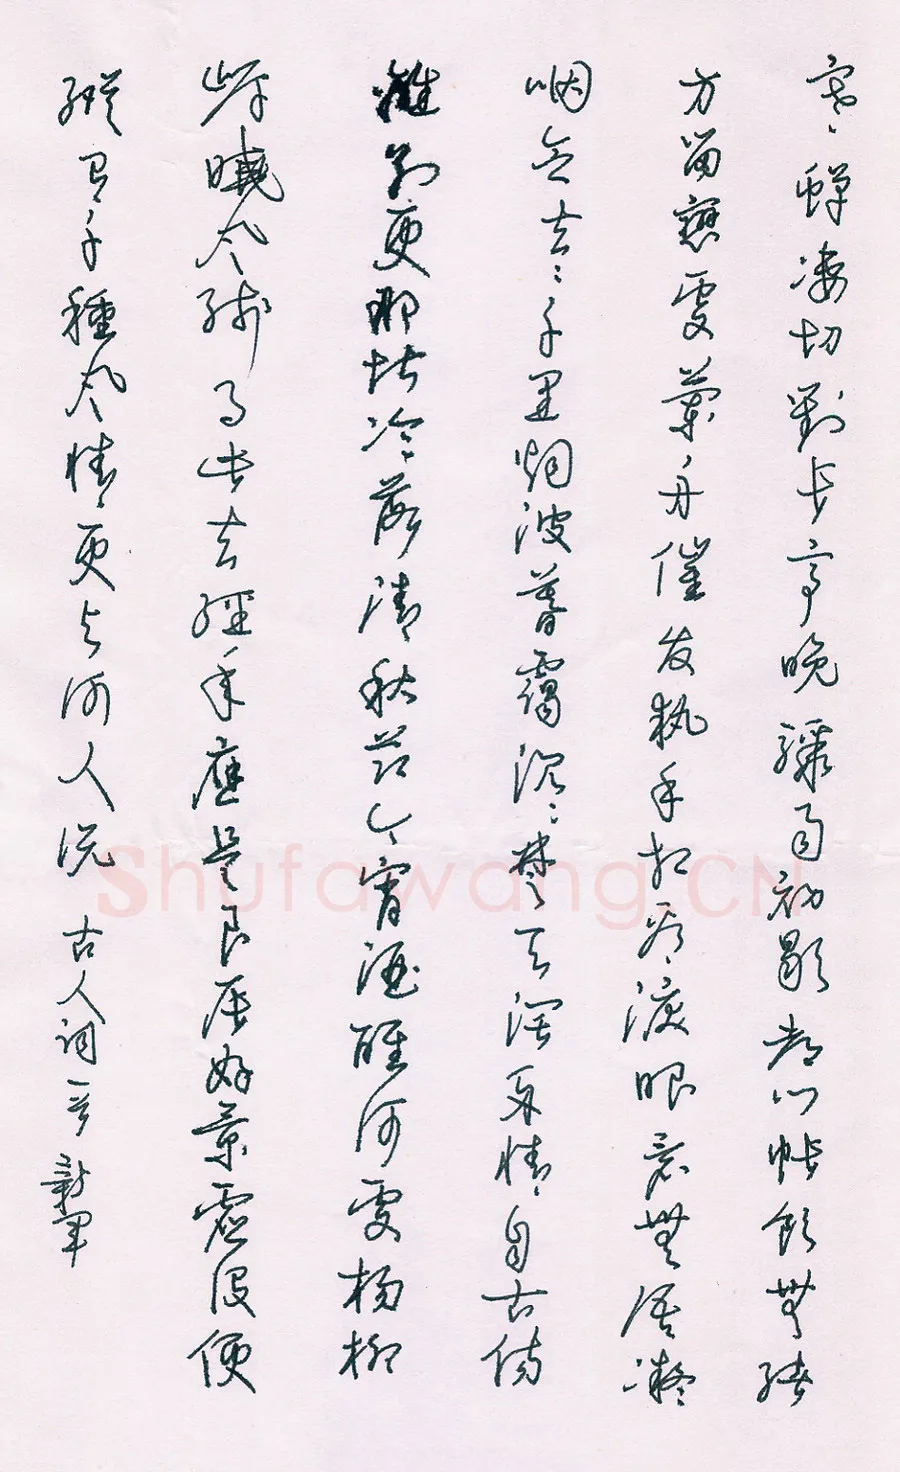 寒蝉凄切對长亭晚驟雨初歇都门帐饮無绪
方留戀處蘭舟催发執手相看淚眼竟無語凝
咽念去々千里烟波暮靄沉々楚天阔多情自古傷
離别更那堪冷落清秋節今宵酒醒何處杨柳
岸曉风残月此去经年應是良辰好景虚设便
縱有千種风情更与何人说 古人词一首 新军
Shufawang.CN